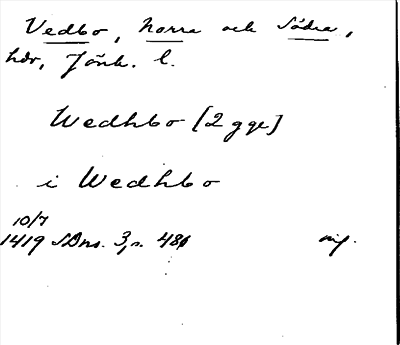 Vedbo, Norra och Södra,
hdr, Jönk. l.
Wedhbo [2 gge]
i Wedhbo
10/7
1419 SDns. 3, s. 486